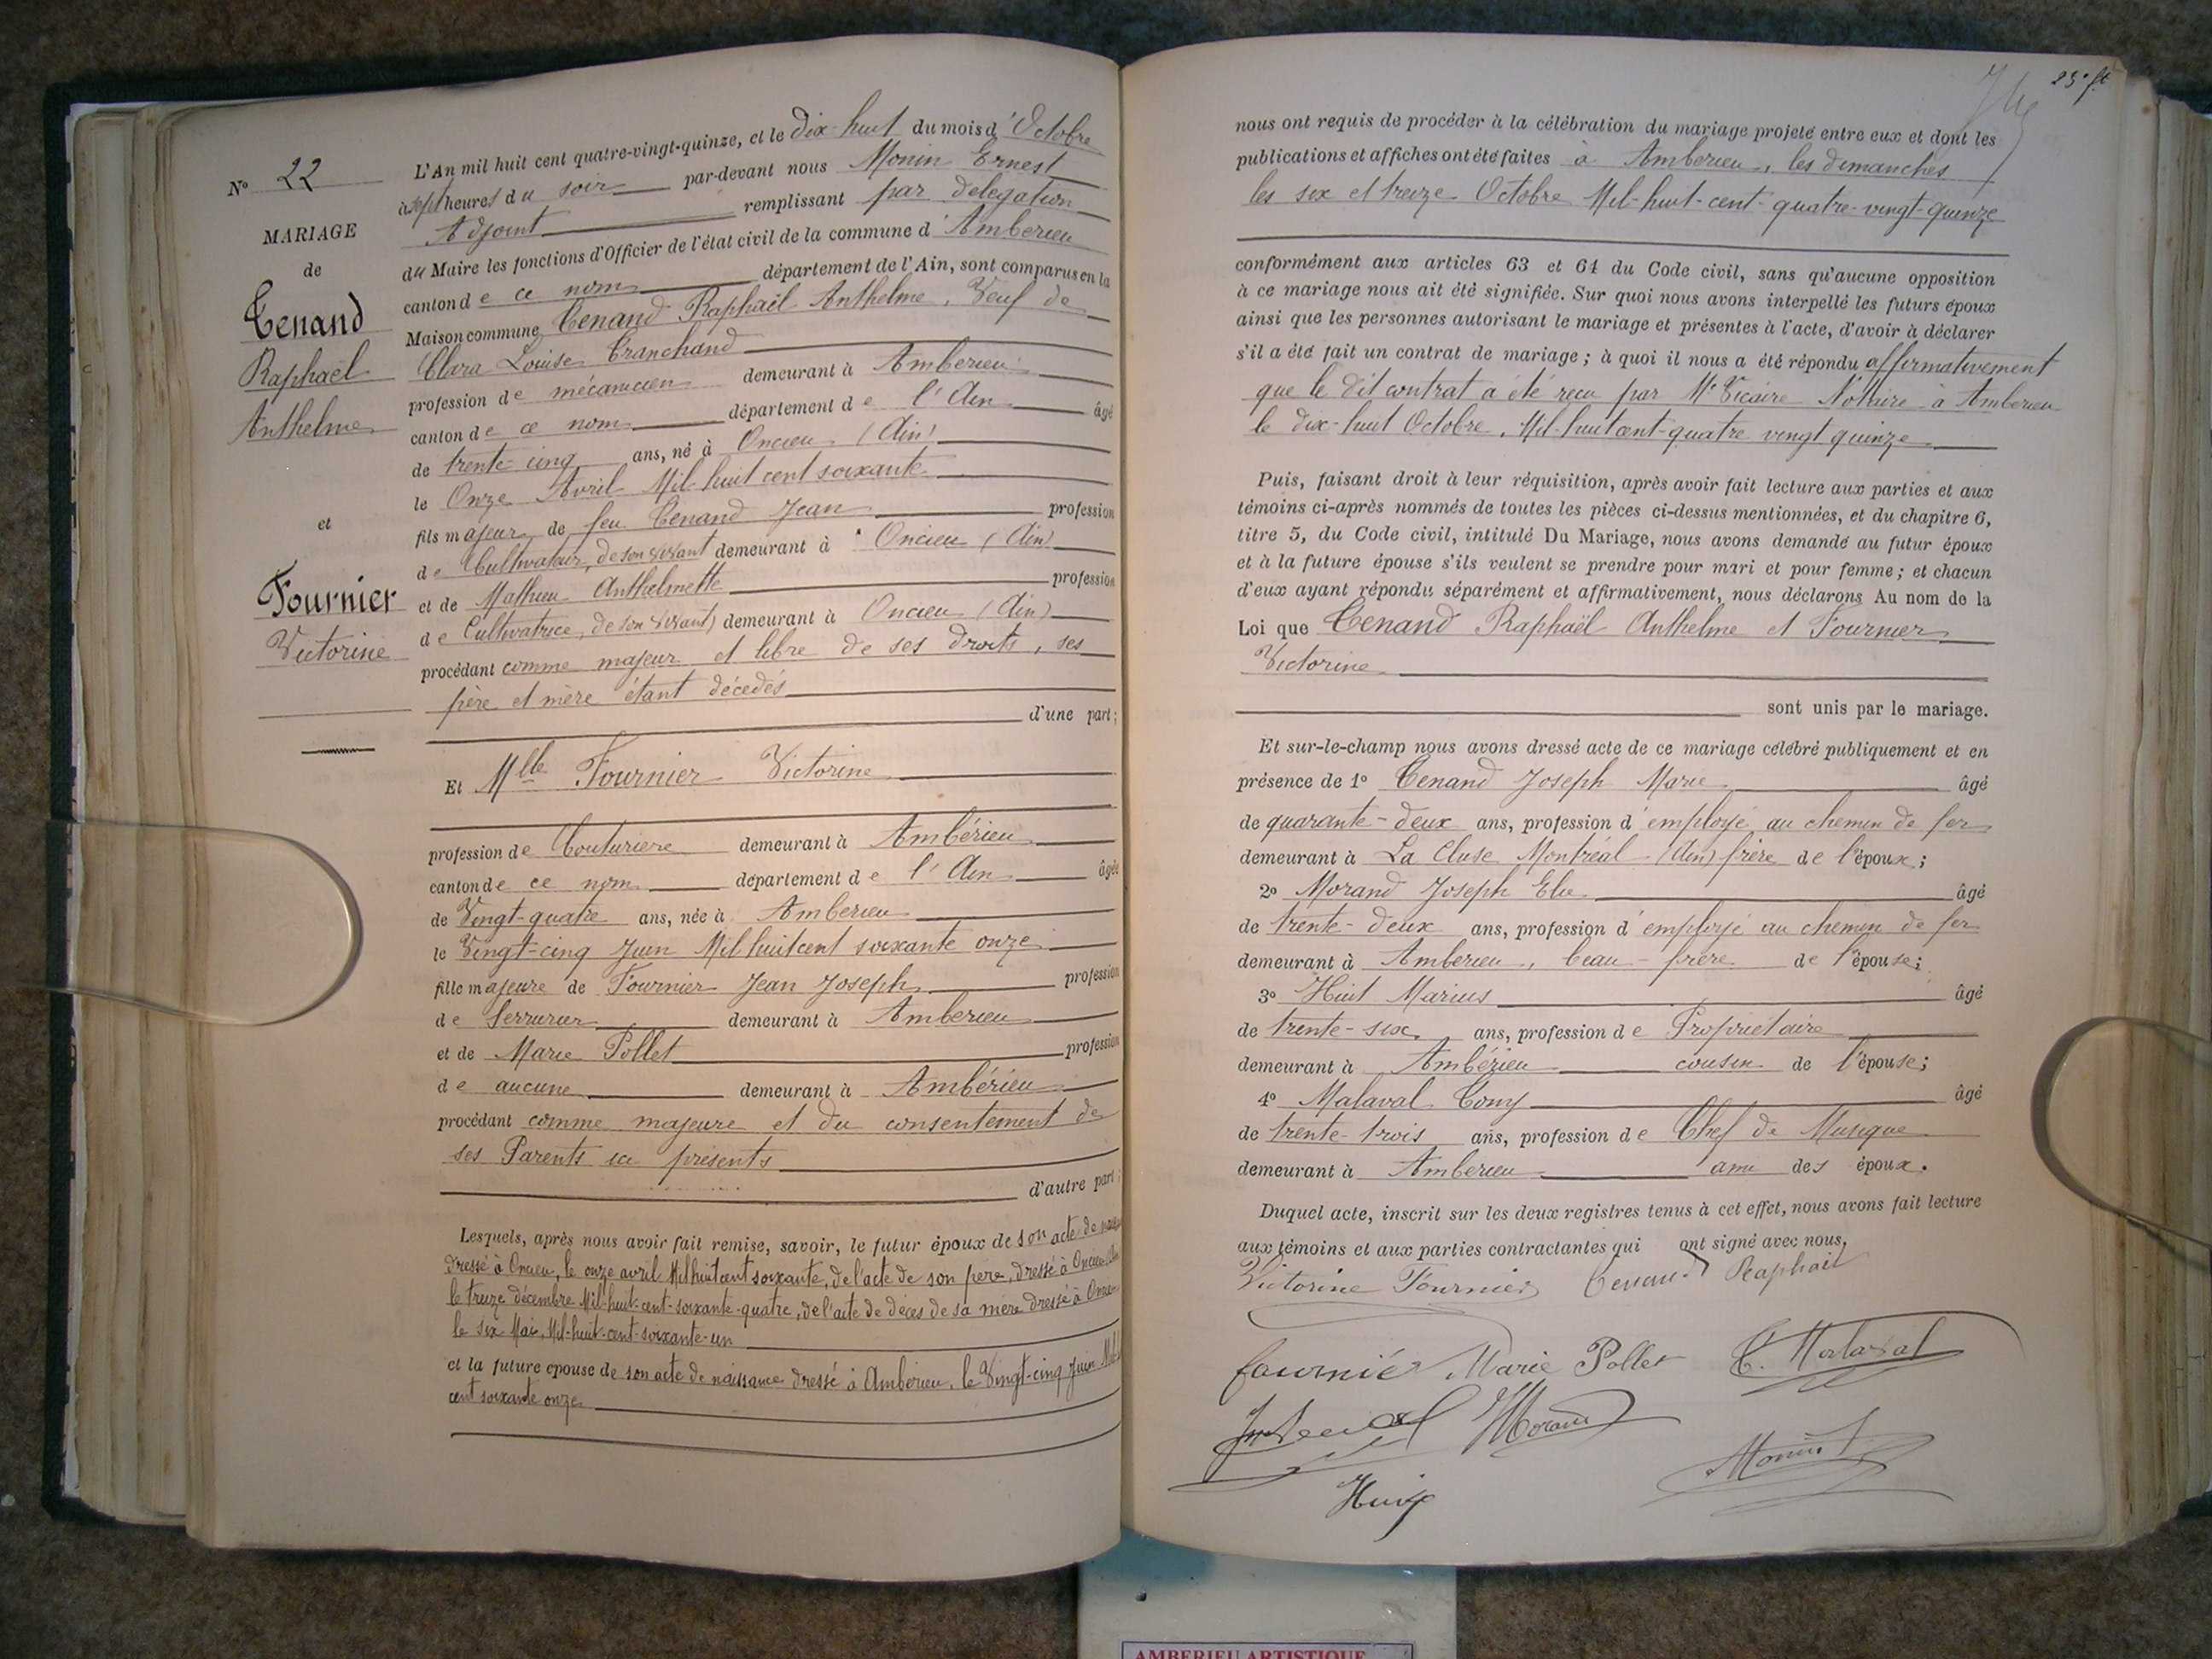 N° 22
MARIAGE
de
Tenand
Raphaël
Anthelme
et
Fournier
Victorine
L'An mil huit cent quatre-vingt-quinze, et le Dix-huit du mois d'Octobre
à sept heures du soir par-devant nous Monin Ernest
Adjoint remplissant par délégation
du Maire les fonctions d'Officier de l'état civil de la commune d'Amberieu
canton de ce nom département de l'Ain, sont comparus en la
Maison commune Tenand Raphaël Anthelme, Veuf de
Clara Louise Tranchand
profession de mécanicien demeurant à Amberieu
canton de ce nom département de l'Ain âgé
de trente-cinq ans, né à Oncieu (Ain)
le Onze Avril Mil huit cent soixante
fils majeur de feu Tenand Jean profession
de Cultivateur, de son vivant demeurant à Oncieu (Ain)
et de Mathieu Anthelmette profession
de Cultivatrice, de son vivant) demeurant à Oncieu (Ain)
procédant comme majeur et libre de ses droits, ses
père et mère étant décédés
d'une part;
Et Mlle Fournier Victorine
profession de Couturière demeurant à Ambérieu
canton de ce nom département de l'Ain âgée
de Vingt-quatre ans, née à Amberieu
le Vingt-cinq Juin Mil huit cent soixante onze
fille majeure de Fournier Jean Joseph profession
de Serrurier demeurant à Amberieu
et de Marie Pollet profession
de aucune demeurant à Ambérieu
procédant comme majeure et du consentement de
ses Parents ici présents
d'autre part;
Lesquels, après nous avoir fait remise, savoir, le futur époux de son acte de
dressé à Oncieu, le onze avril Mil huit cent soixante, de l'acte de son père, dressé à Oncieu
le treize décembre Mil-huit-cent-soixante-quatre, de l'acte de décès de sa mère dressé à
le six Mai, Mil-huit-cent-soixante-un
et la future épouse de son acte de naissance dressé à Amberieu, le Vingt-cinq Juin
cent soixante onze
25e ft
nous ont requis de procéder à la célébration du mariage projeté entre eux et dont les
publications et affiches ont été faites à Amberieu, les dimanches
les six et treize Octobre Mil-huit-cent-quatre-vingt-quinze
conformément aux articles 63 et 64 du Code civil, sans qu'aucune opposition
à ce mariage nous ait été signifiée. Sur quoi nous avons interpellé les futurs époux
ainsi que les personnes autorisant le mariage et présentes à l'acte, d'avoir à déclarer
s'il a été fait un contrat de mariage; à quoi il nous a été répondu affirmativement
que le dit contrat a été reçu par Me Vicaire Notaire à Amberieu
le dix-huit Octobre, Mil-huit cent-quatre vingt quinze
Puis, faisant droit à leur réquisition, après avoir fait lecture aux parties et aux
témoins ci-après nommés de toutes les pièces ci-dessus mentionnées, et du chapitre 6,
titre 5, du Code civil, intitulé Du Mariage, nous avons demandé au futur époux
et à la future épouse s'ils veulent se prendre pour mari et pour femme; et chacun
d'eux ayant répondu séparément et affirmativement, nous déclarons Au nom de la
Loi que Tenand Raphaël Anthelme et Fournier
Victorine
sont unis par le mariage.
Et sur-le-champ nous avons dressé acte de ce mariage célébré publiquement et en
présence de 1° Tenand Joseph Marie âgé
de quarante-deux ans, profession d'employé au chemin de fer
demeurant à La Cluse Montréal (Ain) frère de l'époux;
2° Morand Joseph Elie âgé
de trente-deux ans, profession d'employé au chemin de fer
demeurant à Amberieu, beau-frère de l'épouse;
3° Huit Marius âgé
de trente-six ans, profession de Propriétaire
demeurant à Ambérieu cousin de l'épouse;
4° Malaval Tony âgé
de trente-trois ans, profession de Chef de Musique
demeurant à Amberieu ami des époux.
Duquel acte, inscrit sur les deux registres tenus à cet effet, nous avons fait lecture
aux témoins et aux parties contractantes qui ont signé avec nous,
Victorine Fournier Tenand Raphaël
fournier Marie Pollet T. Malaval
Morand
Monin
Huit
AMBERIEU ARTISTIQUE